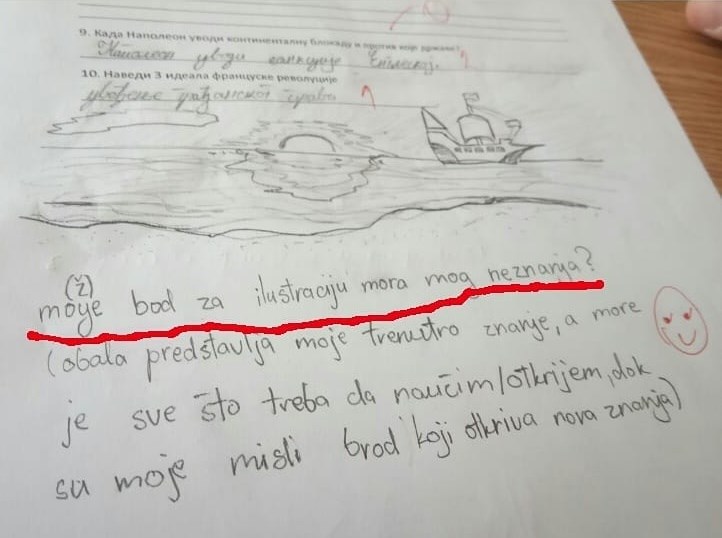 9. Када Наполеон уводи континенталну блокаду и против које државе?
Наполеон уводи Енглеској
10. Наведи 3 идеала француске револуције
уверење грађанског права
(ž)
moye bod za ilustraciju mora mog neznanja?
(obala predstavlja moje trenutno znanje, a more
je sve što treba da naučim/otkrijem, dok
su moje misli brod koji otkriva nova znanja)